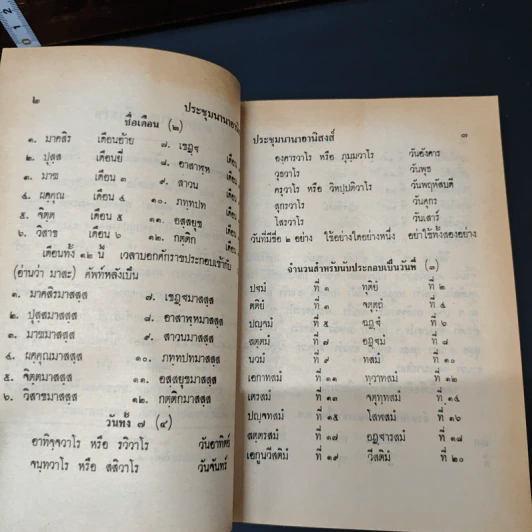 ๒ ประชุมนานาอานิสงส์
ชื่อเดือน (๒)
๑. มาคสิร เดือนอ้าย ๗. เชฏฺฐ
๒. ปุสฺส เดือนยี่ ๘. อาสาฬฺห เดือน
๓. มาฆ เดือน ๓ ๙. สาวน เดือน
๔. ผคฺคุณ เดือน ๔ ๑๐. ภทฺทปท เดือน
๕. จิตฺต เดือน ๕ ๑๑. อสฺสยุช เดือน
๖. วิสาข เดือน ๖ ๑๒. กตฺติก เดือน
เดือนทั้ง ๑๒ นี้ เวลาบอกศักราชประกอบเข้ากับ
(อ่านว่า มาสะ) ศัพท์หลังเป็น
๑. มาคสิรมาสสฺส ๗. เชฏฺฐมาสสฺส
๒. ปุสฺสมาสสฺส ๘. อาสาฬฺหมาสสฺส
๓. มาฆมาสสฺส ๙. สาวนมาสสฺส
๔. ผคฺคุณมาสสฺส ๑๐. ภทฺทปทมาสสฺส
๕. จิตฺตมาสสฺส ๑๑. อสฺสยุชมาสสฺส
๖. วิสาขมาสสฺส ๑๒. กตฺติกมาสสฺส
วันทั้ง ๗ (๔)
อาทิจฺจวาโร หรือ รวิวาโร วันอาทิตย์
จนฺทวาโร หรือ สสิวาโร วันจันทร์
ประชุมนานาอานิสงส์ ๓
องฺคารวาโร หรือ ภุมฺมวาโร วันอังคาร
วุธวาโร วันพุธ
ครุวาโร หรือ วิหปฺปติวาโร วันพฤหัสบดี
สุกฺรวาโร วันศุกร
โสรวาโร วันเสาร์
วันที่มีชื่อ ๒ อย่าง ใช้อย่างใดอย่างหนึ่ง อย่าใช้ทั้งสองอย่าง
จำนวนสำหรับนับประกอบเป็นวันที่ (๓)
ปฐมํ ที่ ๑ ทุติยํ ที่ ๒
ตติยํ ที่ ๓ จตุตฺถํ ที่ ๔
ปญฺจมํ ที่ ๕ ฉฏฺฐํ ที่ ๖
สตฺตมํ ที่ ๗ อฏฺฐมํ ที่ ๘
นวมํ ที่ ๙ ทสมํ ที่ ๑๐
เอกาทสมํ ที่ ๑๑ ทฺวาทสมํ ที่ ๑๒
เตรสมํ ที่ ๑๓ จตุทฺทสมํ ที่ ๑๔
ปญฺจทสมํ ที่ ๑๕ โสฬสมํ ที่ ๑๖
สตฺตรสมํ ที่ ๑๗ อฏฺฐารสมํ ที่ ๑๘
เอกูนวีสติมํ ที่ ๑๙ วีสติมํ ที่ ๒๐